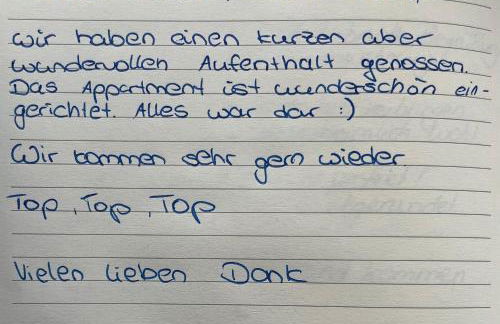 Wir haben einen kurzen aber
wundervollen Aufenthalt genossen.
Das Appartment ist wunderschön ein-
gerichtet. Alles war dar :)
Wir kommen sehr gern wieder
Top, Top, Top
Vielen lieben Dank